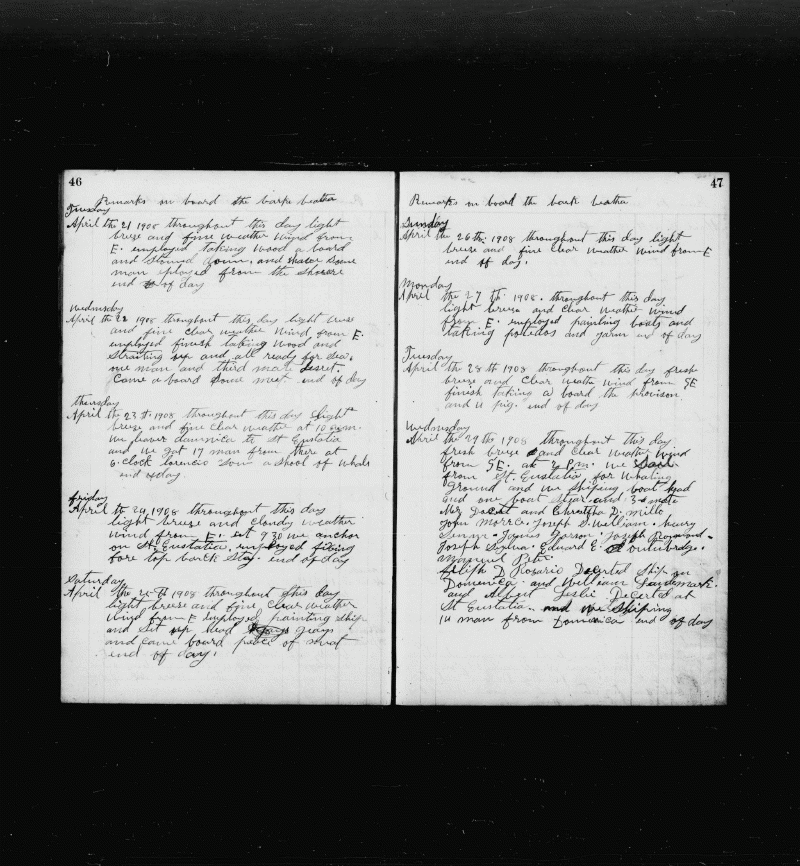 46
Remarks on board the barke
Tuesday
April the 21 1908 throughout this day light
breze and fine weather wind from
E. employed taking wood a board
and stowed down, and
man from the
end of day
Wednesday
April the 22 1908 throughout this day light breze
and fine clear weather wind from E.
employed finish taking wood and
up and all ready for sea.
one man and third mate desert.
Came a board some meet end of day
thursday
April the 23 th. 1908 throughout this day light
breze and fine clear weather at 10
we leaver dominica to St Eustatia
and we got 17 man from there at
6. clock a shool of whals
end of day
friday
April th 24 1908 throughout this day
light breeze and cloudy weather
wind from E. at 9 30 we anchor
on St. Eustatia. employed fixing
fore top back stay. end of day
Saturday
April the 25 th 1908 throughout this day
light breeze and fine clear weather
wind from E employed painting ship
and set up head
and came board peace of meat
end of day.
47
Remarks on board the bark
Sunday
April the 26 th. 1908 throughout this day light
breze and fine clear weather wind from E
end of day.
Monday
April the 27 th. 1908. throughout this day
light breze and clear weather wind
from E. employed painting boats and
taking and end of day
Tuesday
April the 28 th 1908 throughout this day fresh
breze and clear weather wind from SE
finish taking a board the
and 11 pig. end of day
Wednesday
April the 29 th 1908 throughout this day
fresh breze and clear weather wind
from SE. at P.m. we
from St. Eustatia for Whaling
Ground and we shiping boat had
and one boat and 3 mate
and D. Mills
John Joseph D. William. Henry
James Joseph
Joseph Sylvia. Edward E. outerbridge.
Manuel
D Rosario Decerted ship on
Domenica. and William
and Albert Leslie Decerted at
St Eustatia. and we shiping
man from Domenica end of day